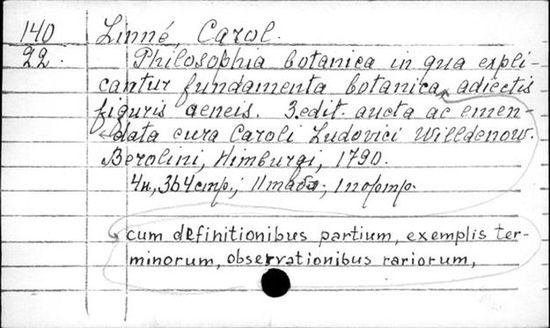 140 Linné, Carol.
22. Philosophia botanica in qua expli-
cantur fundamenta botanica, adiectis
figuris aeneis. 3.edit. aucta ac emen-
data cura Caroli Ludovici Willdenow.
Berolini, Himburgi, 1790.
4н., 364 стр.;
cum definitionibus partium, exemplis ter-
minorum, observationibus rariorum,